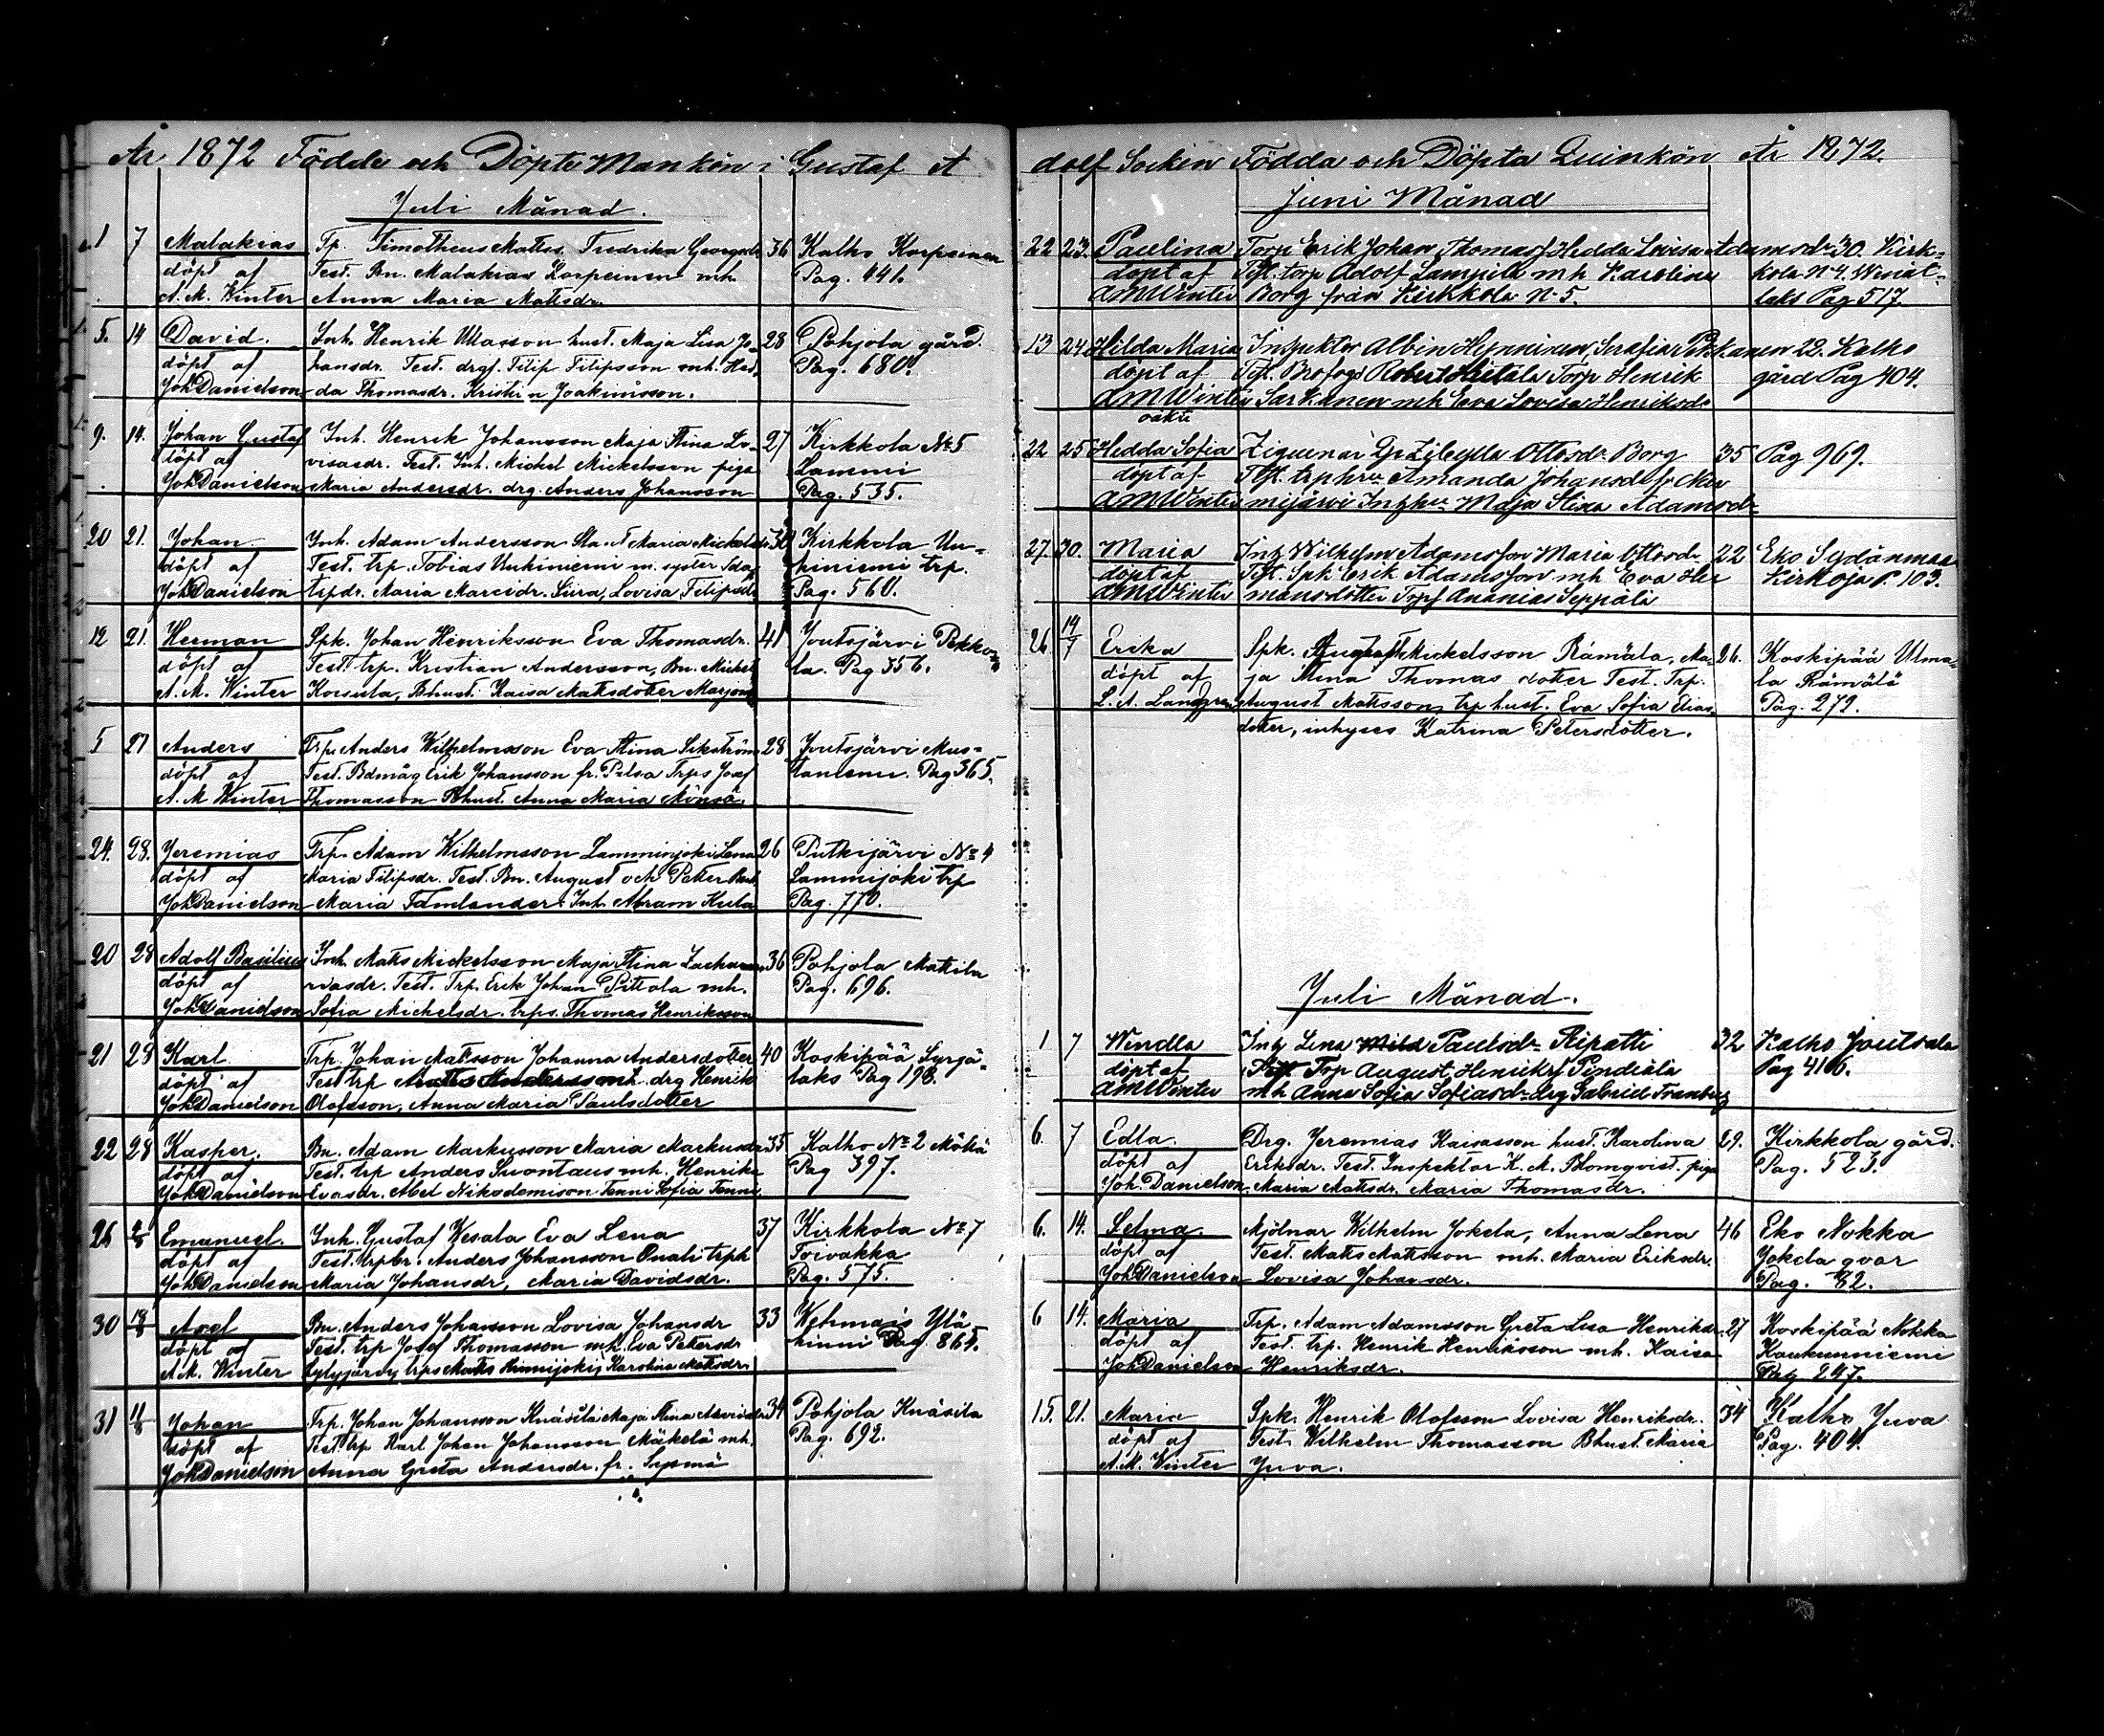 År 1872 Födde och Döpte Mankön i Gustaf A
Juli Månad.
1 7 Malakias Tp. Timotheus Matts. Fredrika Georgsdr 36 Kalho Korpeinen
döpt af Test. Bn. Malakias Korpeinen mh. Pag. 441.
A. M. Winter Anna Maria Mattsdr.
5. 14 David. Inh. Henrik Ullasson hust. Maja Lisa Jo- 28 Pohjola gård.
döpt af hansdr. Test. drgf. Filip Filipsson mh. Hed- Pag. 680.
Joh Danielson da Thomasdr. Kristin Joakimsson.
9. 14. Johan Gustaf Inh. Henrik Johansson Maja Stina Lo- 27 Kirkkola No 5
döpt af visasdr. Test. Inh. Michel Mickelsson piga Lammi
Joh Danielson Maria Andersdr. drg. Anders Johansson Pag. 535.
20 21. Johan Inh. Adam Andersson Maria Mickelsdr 30 Kirkkola Un-
döpt af Test. trp. Tobias Unhiniemi m. syster Ida hiniemi trp.
Joh Danielson trpdr. Maria Marcidr. Siira, Lovisa Filipsdr Pag. 560.
12 21. Herman Spk. Johan Henriksson Eva Thomasdr. 41 Joutsjärvi Pekko-
döpt af Test. trp. Kristian Andersson, Bn. Michel la. Pag 356.
A. M. Winter Bhust. Kaisa Mattsdotter
5 27 Anders Trp. Anders Wilhelmsson Eva Stina Sikström 28 Joutsjärvi Mus-
döpt af Test. Bdmåg Erik Johansson fr. Trps Josef taniemi. Pag 365.
A. M Winter Thomasson Bhust. Anna Maria
24. 28. Jeremias Trp. Adam Wilhelmsson Lamminjoki Lena 26 Putkijärvi No 4
döpt af Maria Filipsdr. Test. Bn. August och Petter Lammijoki trp
Joh Danielson Maria Tamlander Inh. Abram Pag. 770.
20 28 Adolf Basilius Inh. Matts Mickelsson Maja Stina Zacha- 36 Pohjola Mattila
döpt af riasdr. Test. Trp. Erik Johan Pittola mh. Pag. 696.
Joh Danielson Sofia Michelsdr. trps. Thomas Henriksson
21 28 Karl Trp. Johan Matsson Johanna Andersdotter 40 Koskipää Syrjä-
döpt af Test trp Matts Andersson mh. drg Henrik laks Pag 198.
Joh Danielson Olofsson, Anna Maria Paulsdotter
22 28 Kasper. Bn. Adam Markusson Maria Markusdr 35 Kalho No 2 Mökiä
döpt af Test. trp Anders Suontaus mh. Henrika Pag 397.
Joh Danielson Evasdr. Abel Nikodemison Tenni Sofia Tenni
26 4/8 Emanuel. Inh. Gustaf Wesala Eva Lena 37 Kirkkola No 7
döpt af Test. trpbr. Anders Johansson Onali trph Toivakka
Joh Danielson Maria Johansdr, Maria Davidsdr. Pag. 575.
30 18/8 Axel Bn. Anders Johansson Lovisa Johansdr 33 Wehmais Ylä
döpt af Test. trp Josef Thomasson mh. Eva Petersdr hinni Pag. 865.
A. M. Winter trps Matts Karolina Mattsdr.
31 11/8 Johan Trp. Johan Johansson Knäsilä Maja Stina 34 Pohjola Knäsilä
döpt af Test trp Karl Johan Johansson Mäkelä mh. Pag. 692.
Joh Danielson Anna Greta Andersdr. fr. Sysmä
dolf Socken Födda och Döpta Quinkön År 1872.
Juni Månad
22 23. Paulina Torp Erik Johan Thomass Hedda Lovisa Adamsdr 30. Kirk-
döpt af Tst. torp Adolf Lampila mh Karolina kola No 4.
AMWinter Borg från Kirkkola No 5. laks Pag 517
13 24 Hilda Maria Inspektor Albin Hynninen, Serafia 22. Kalho
döpt af Tst. Brofogd Robert Hietala Torp Henrik gård Pag 404.
AMWinter Sarkanen mh Eva Lovisa Henriksdr
oäkta
22 25 Hedda Sofia Ziguenar Ottosdr Borg 35 Pag 969.
döpt af Tst. trphu Amanda Johansdr fr Nur
AMWinter mijärvi Maja Stina Adamsdr
27. 30. Maria Inh Wilhelm Adamsson Maria Ottosdr 22 Eko Sydänmaa
döpt af Tst. Spk Erik Adamsson mh Eva Her Kirkoja P. 103.
AMWinter mansdotter Torp Ananias Seppälä
26. 14/7 Erika Spk. August Mickelsson Rämälä, Ma- 26. Koskipää Ulma-
döpt af ja Stina Thomas dotter Test. Trp. la Rämälä
L. A. Landgren August Mattsson, trp hust. Eva Sofia Elias- Pag. 272.
dotter, inhyses Katrina Petersdotter.
Juli Månad.
1 7 Wendla Inh Lena Paulsdr Ripatti 32 Kalho Joutsela
döpt af Tst Torp August Henriks Pendiälä Pag 416.
AMWinter mh Anna Sofia Sofiasdr drg Gabriel Tranberg
6. 7 Edla. Drg. Jeremias Kaisasson hust. Karolina 29. Kirkkola gård.
döpt af Eriksdr. Test. Inspektor K. A. Blomqvist. piga Pag. 523.
Joh. Danielson. Maria Mattsdr. Maria Thomasdr.
6. 14. Selma. Mjölnar Wilhelm Jokela, Anna Lena 46 Eko Nokka
döpt af Test. Matts Mattsson mh. Maria Eriksdr. Jokela qvar
Joh Danielson Lovisa Johansdr. Pag. 82.
6 14. Maria Trp. Adam Adamsson Greta Lisa Henriksdr. 27 Koskipää Nokka
döpt af Test. trp. Henrik Henriksson mh. Kaisa Kaukunniemi
Joh Danielson Henriksdr. Pag 247.
15. 21. Maria Spk. Henrik Olofsson Lovisa Henriksdr. 34 Kalho Juva
döpt af Test. Wilhelm Thomasson Bhust. Maria Pag. 404.
A. M. Winter Juva.